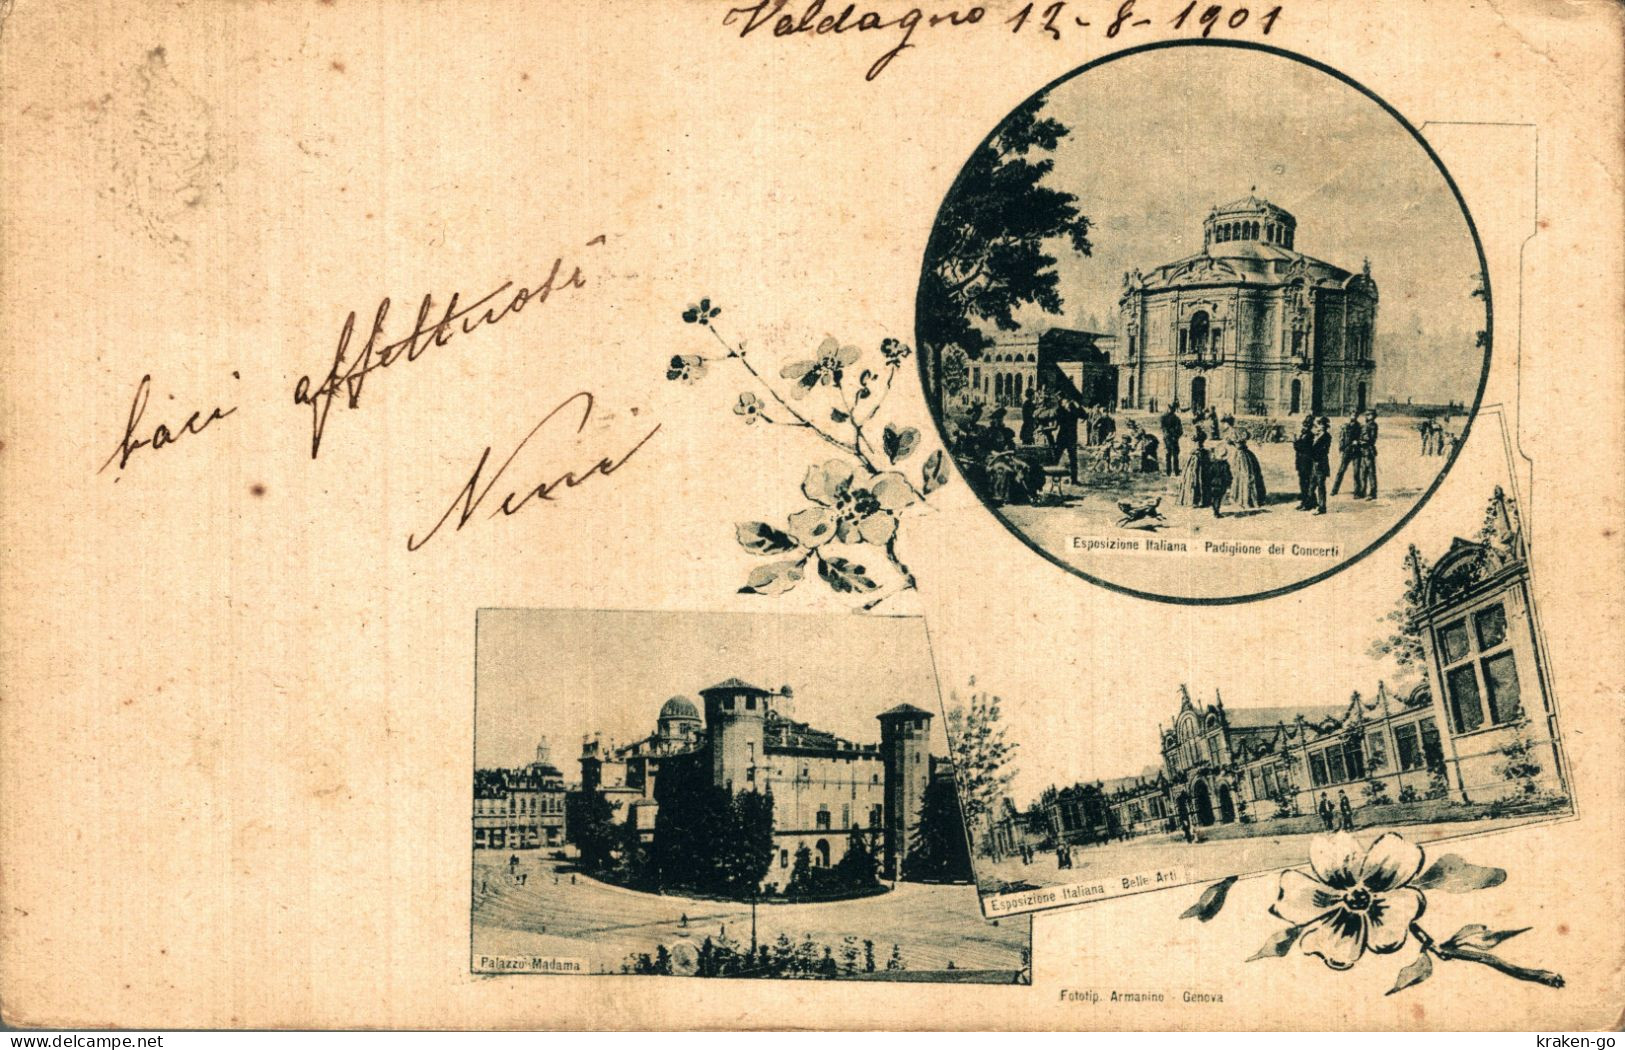 Valdagno 12-8-1901
baci affettuosi
Nini
Esposizione Italiana - Padiglione dei Concerti
Esposizione Italiana - Belle Arti
Palazzo Madama
Fototip. Armanino - Genova
kraken-go
delcampe.net